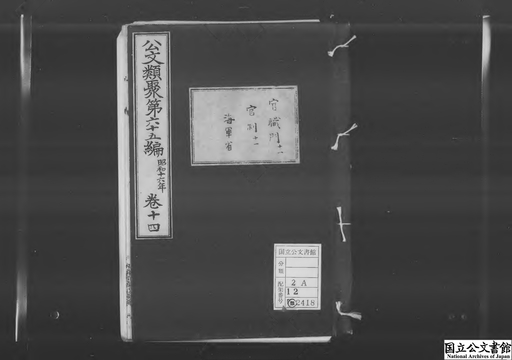 公文類聚第六十五編 昭和十六年 巻十四
官職門十一
官制十一
海軍省
国立公文書館
分類
配架番号
2 A
12
2418
国立公文書館
National Archives of Japan